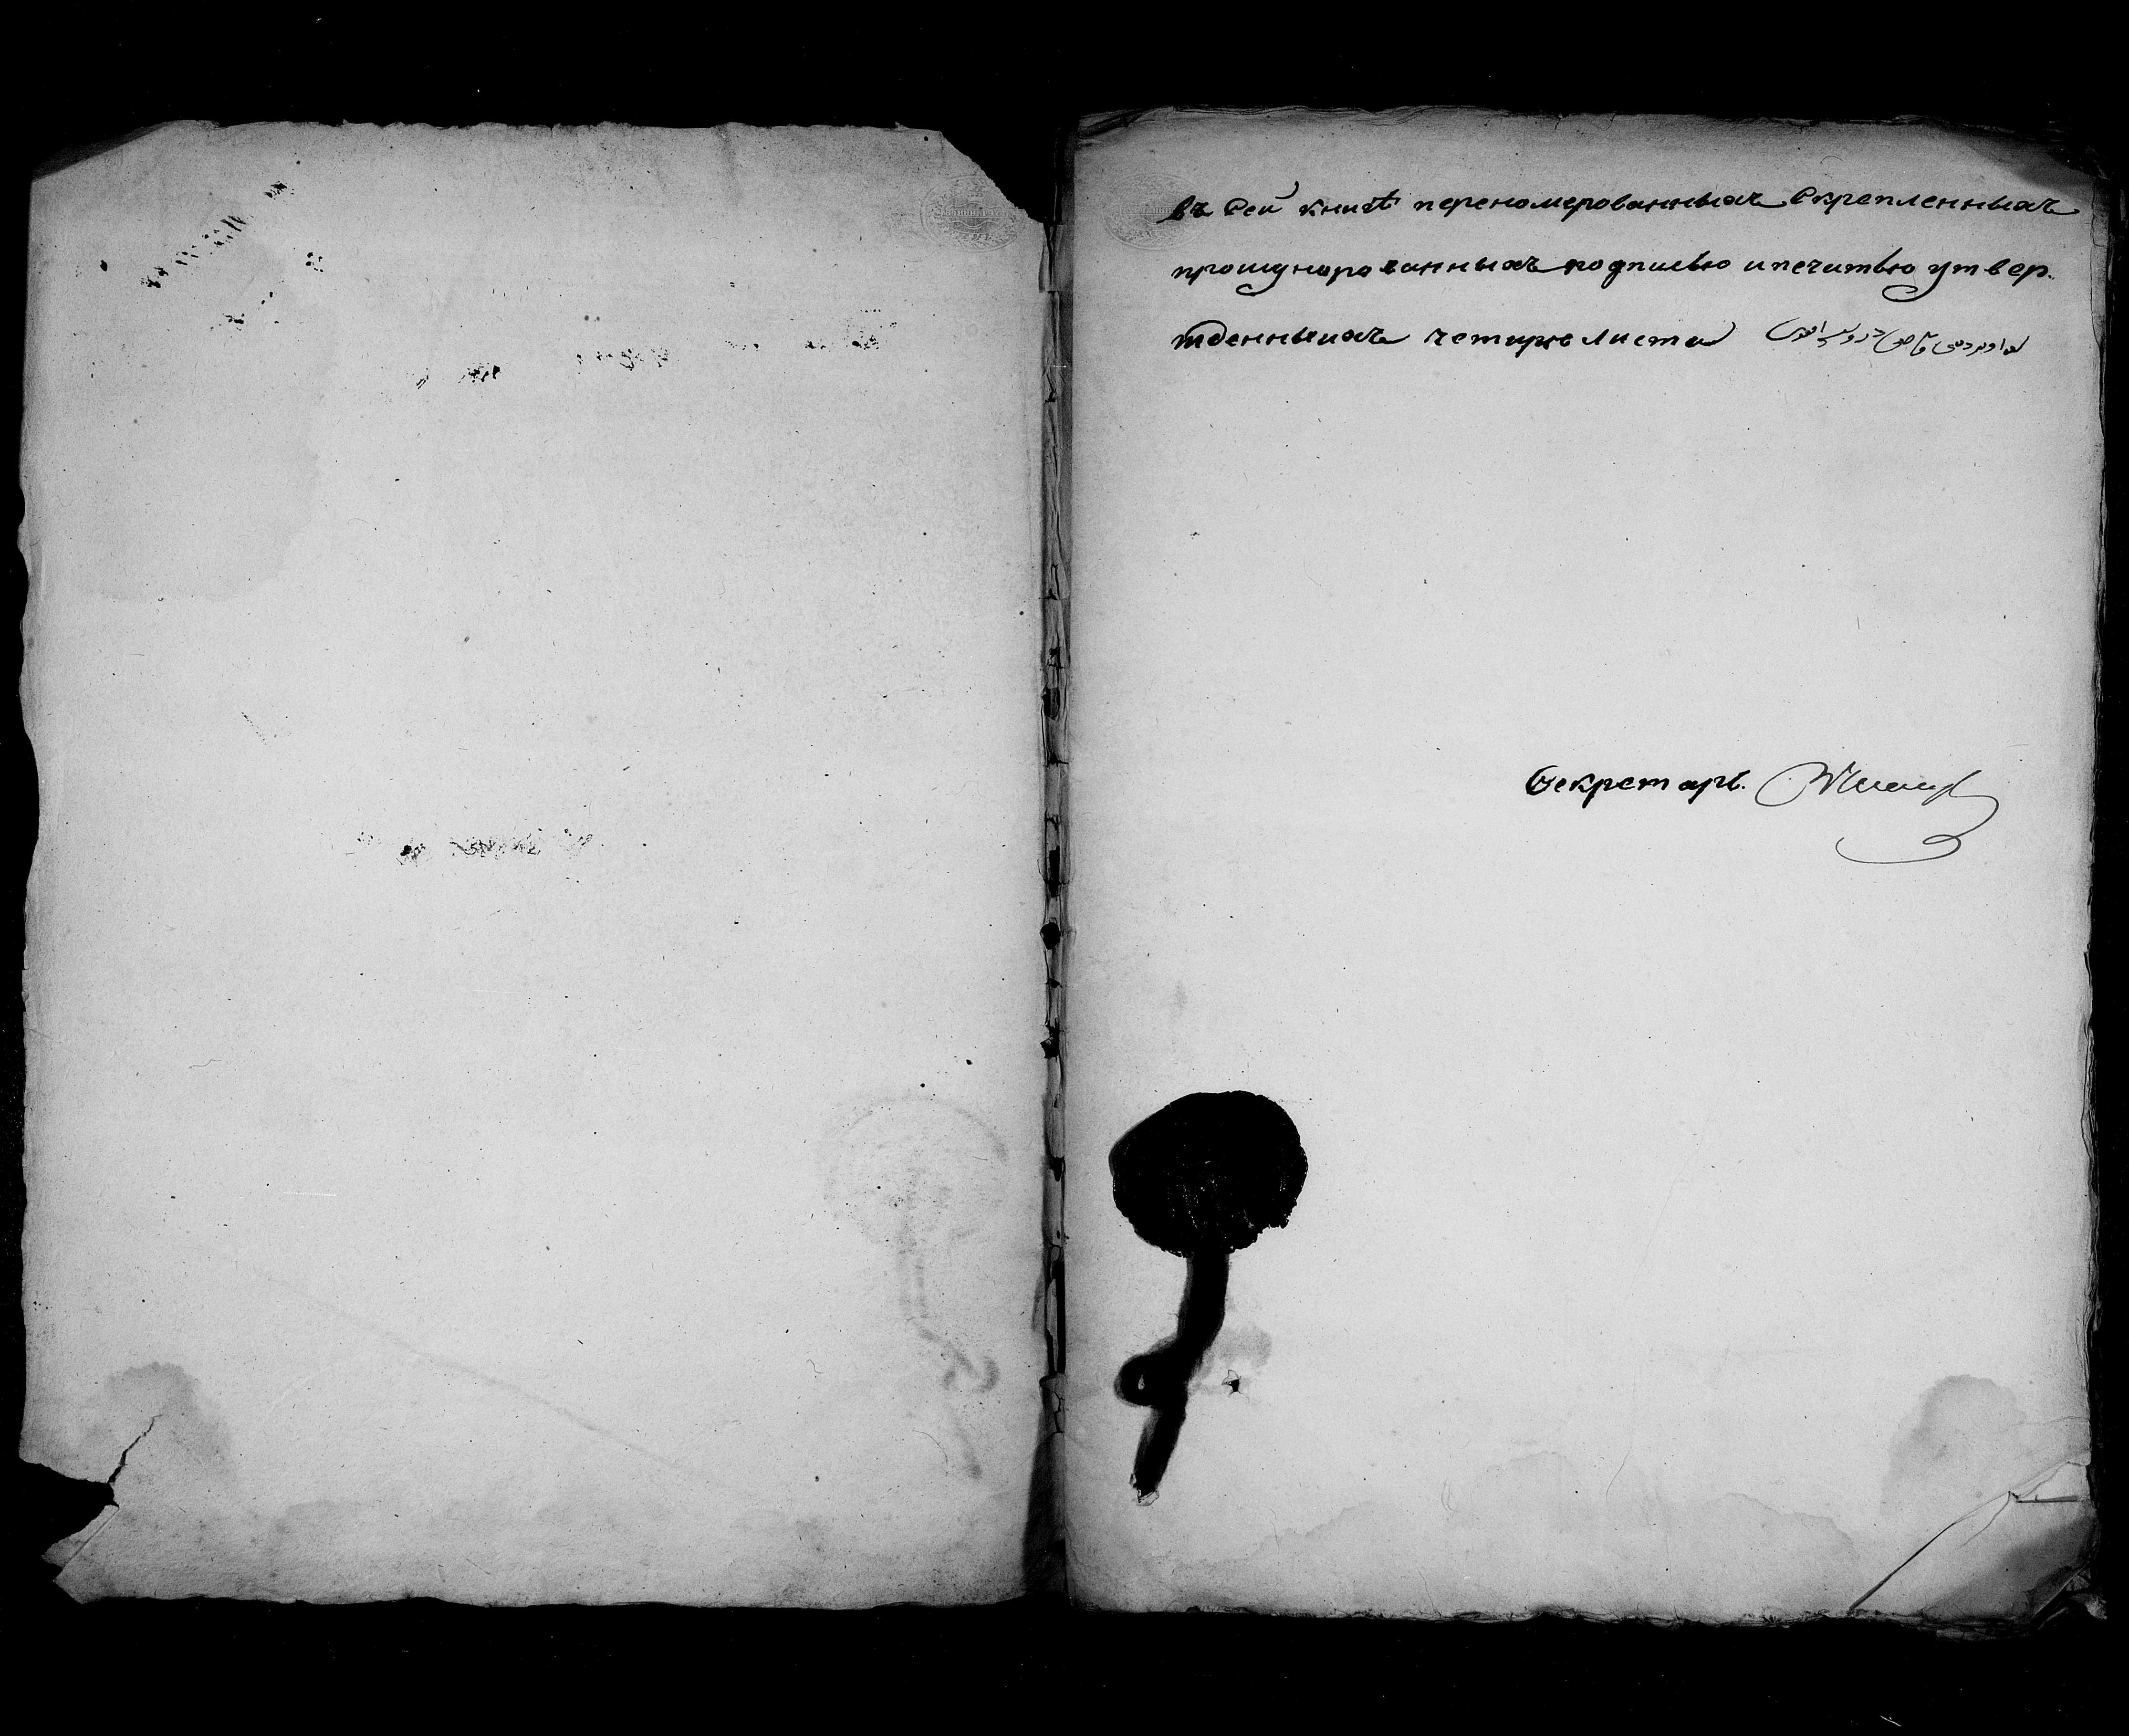 въ Сей книгѣ переномерованныхъ Скрепленныхъ
прошунурованныхъ подписью и печатью утвер.
жденныихъ четырѣ листа
Секретарь.